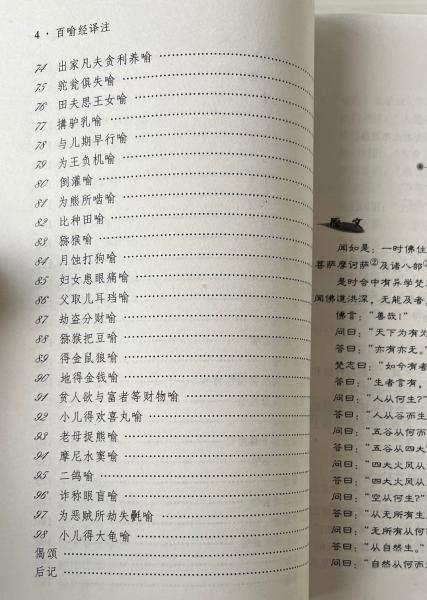 4 · 百喻经译注
74 出家凡夫贪利养喻
75 驼瓮俱失喻
76 田夫思王女喻
77 搆驴乳喻
78 与儿期早行喻
79 为王负机喻
80 倒灌喻
81 为熊所啮喻
82 比种田喻
83 猕猴喻
84 月蚀打狗喻
85 妇女患眼痛喻
86 父取儿耳珰喻
87 劫盗分财喻
88 猕猴把豆喻
89 得金鼠狼喻
90 地得金钱喻
91 贫人欲与富者等财物喻
92 小儿得欢喜丸喻
93 老母捉熊喻
94 摩尼水窦喻
95 二鸽喻
96 诈称眼盲喻
97 为恶贼所劫失氎喻
98 小儿得大龟喻
偈颂
后记
原文
闻如是：一时佛住
菩萨摩诃萨②及诸八部③
是时会中有异学梵
闻佛道洪深，无能及者，
佛言：“善哉！”
问曰：“天下为有为
答曰：“亦有亦无。”
梵志曰：“如今有者
答曰：“生者言有，
问曰：“人从何生？”
答曰：“人从谷而生
问曰：“五谷从何而
答曰：“五谷从四大
问曰：“四大火风从
答曰：“四大火风从
问曰：“空从何生？”
答曰：“从无所有生
问曰：“无所有从何
答曰：“从自然生。”
问曰：“自然从何而